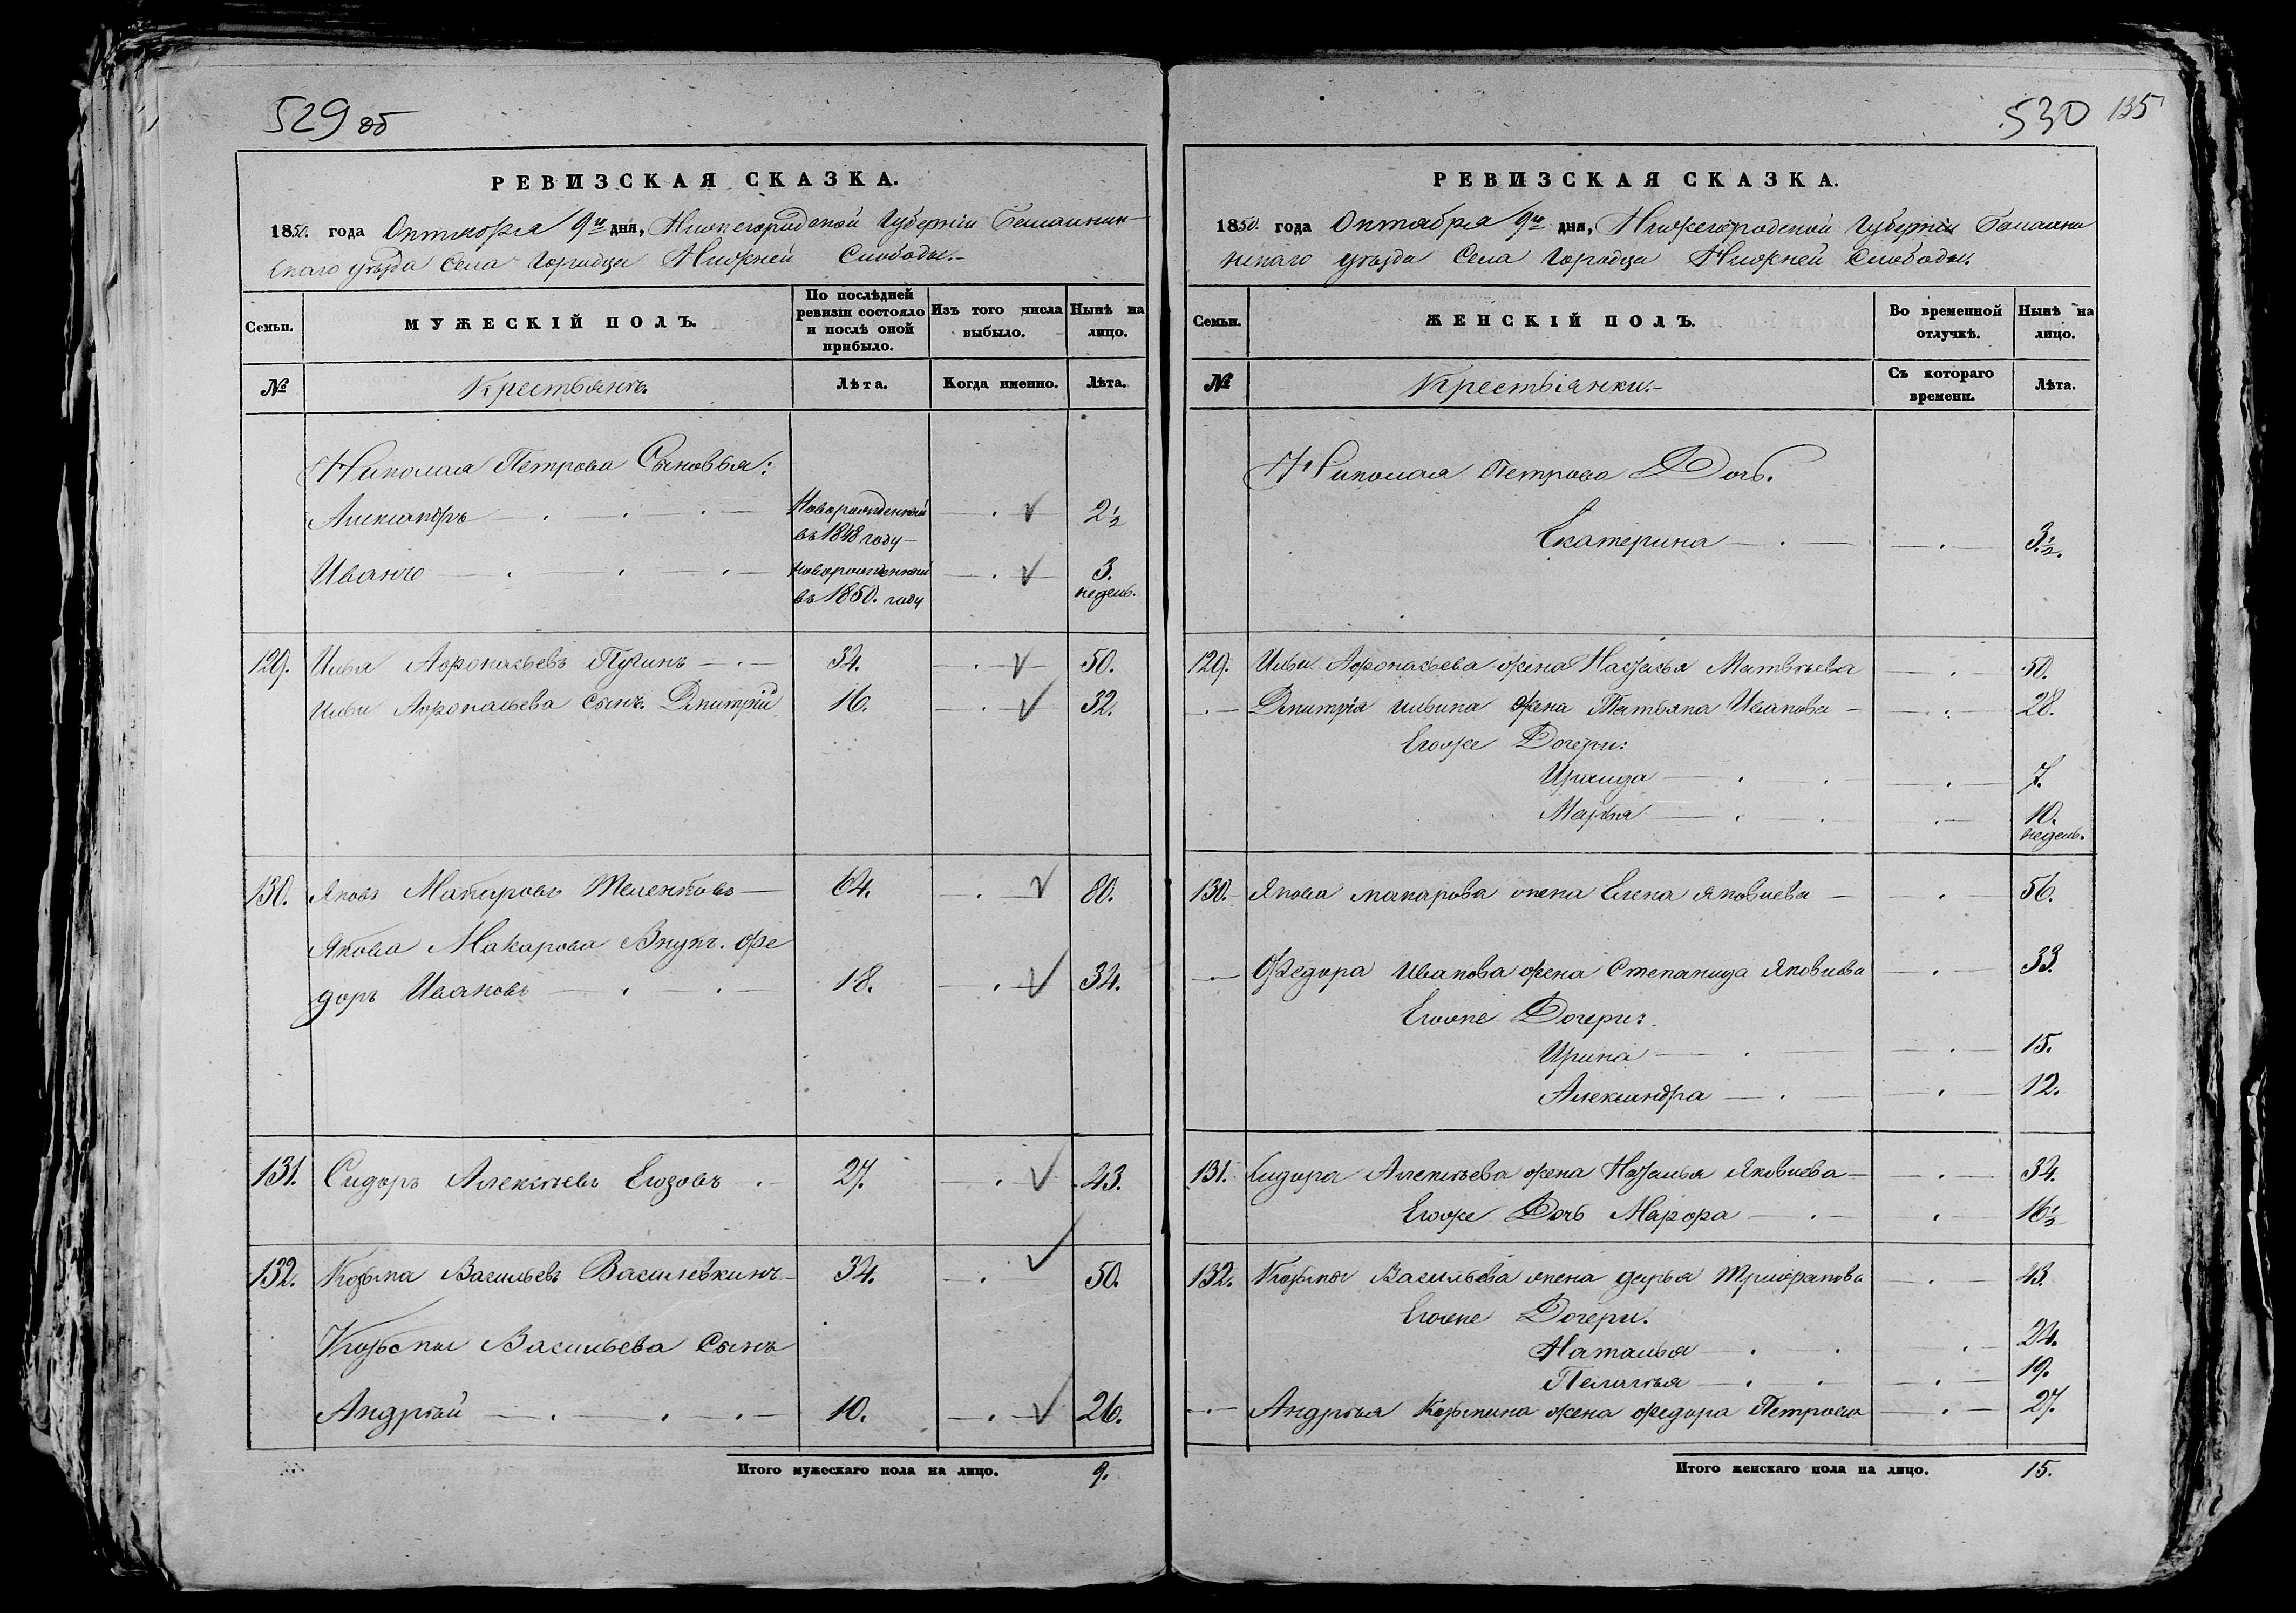 529 об
РЕВИЗСКАЯ СКАЗКА.
1850. года Октября 9го дня, Нижегородской Губернии Балахнин-
скаго уѣзда Села Городца Нижней Слободы.-
Семьи.
МУЖЕСКІЙ ПОЛЪ.
По послѣдней ревизіи состояло и послѣ оной прибыло.
Изъ того числа выбыло.
Нынѣ на лицо.
№
Крестьянъ.
Лѣта.
Когда именно.
Лѣта.
Николая Петрова Сыновья:
Александръ новорожденный въ 1848 году 2½
Иванъ новорожденный въ 1850. году 3. недель.
129. Илья Афонасьевъ Пугинъ 34. 50.
Ильи Афонасьева сынъ Дмитрій 16. 32.
130. Яковъ Макаровъ Теленковъ 64. 80.
Якова Макарова Внукъ Фе
доръ Ивановъ 18. 34.
131. Сидоръ Алексѣевъ Елизовъ 27. 43.
132. Козьма Васильевъ Василевкинъ 34. 50.
Козьмы Васильева Сынъ
Андрѣй 10. 26.
Итого мужескаго пола на лицо. 9.
530 135
РЕВИЗСКАЯ СКАЗКА.
1850. года Октября 9го дня, Нижегородской Губернии Балахни
нскаго уѣзда Села Городца Нижней Слободы.
Семьи.
ЖЕНСКІЙ ПОЛЪ.
Во временной отлучкѣ.
Нынѣ на лицо.
№
Крестьянки.-
Съ котораго времени.
Лѣта.
Николая Петрова Дочь.
Екатерина 3½.
129. Ильи Афонасьева жена Настасья Матвѣева 50.
Дмитрія Ильина жена Татьяна Иванова 28.
Егоже Дочери:
Ираида 7.
Марья 10. недель.
130. Якова Макарова жена Елена Яковлева 56.
Федора Иванова жена Степанида Яковлева 33.
Егоже Дочери:
Ирина 15.
Александра 12.
131. Сидора Алексѣева жена Наталья Яковлева 34.
Егоже Дочь Марфа 16½
132. Козьмы Васильева жена Дарья Трифанова 43.
Егоже Дочери.
Наталья 24.
Пелагѣя 19.
Андрѣя Козьмина жена Федора Петрова 27.
Итого женскаго пола на лицо. 15.